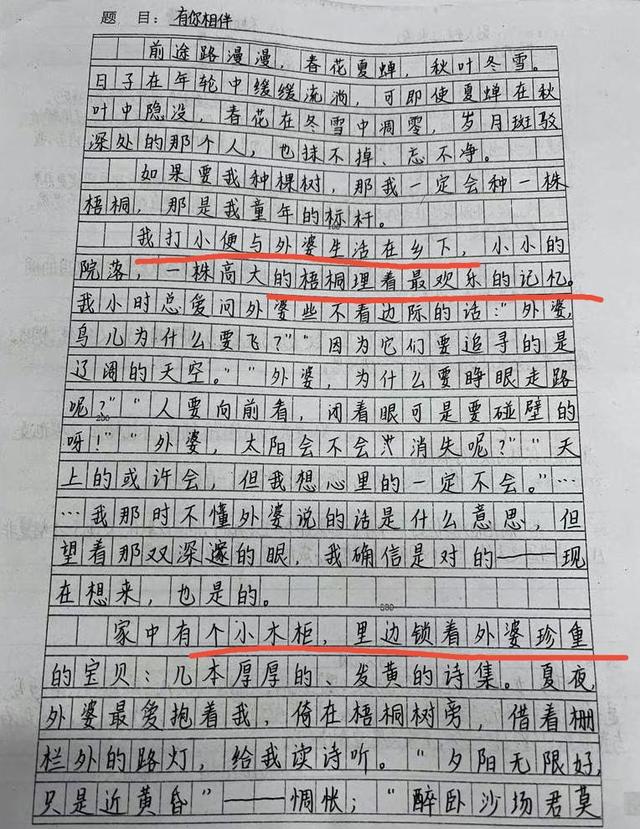 题 目：有你相伴
前途路漫漫，春花夏蝉，秋叶冬雪。
日子在年轮中缓缓流淌，可即使夏蝉在秋
叶中隐没，春花在冬雪中凋零，岁月斑驳
深处的那个人，也抹不掉、忘不净。
如果要我种棵树，那我一定会种一株
梧桐，那是我童年的标杆。
100
我打小便与外婆生活在乡下，小小的
院落，一株高大的梧桐埋着最欢乐的记忆。
我小时总爱问外婆些不着边际的话：“外婆，
鸟儿为什么要飞？”“因为它们要追寻的是
辽阔的天空。”“外婆，为什么要睁眼走路
呢？”“人要向前看，闭着眼可是要碰壁的
200
呀！”“外婆，太阳会不会消失呢？”“天
上的或许会，但我想心里的一定不会。”…
…我那时不懂外婆说的话是什么意思，但
望着那双深邃的眼，我确信是对的——现
在想来，也是的。
300
家中有个小木柜，里边锁着外婆珍重
的宝贝：几本厚厚的、发黄的诗集。夏夜，
外婆最爱抱着我，倚在梧桐树旁，借着栅
栏外的路灯，给我读诗听。“夕阳无限好，
只是近黄昏”——惆怅；“醉卧沙场君莫